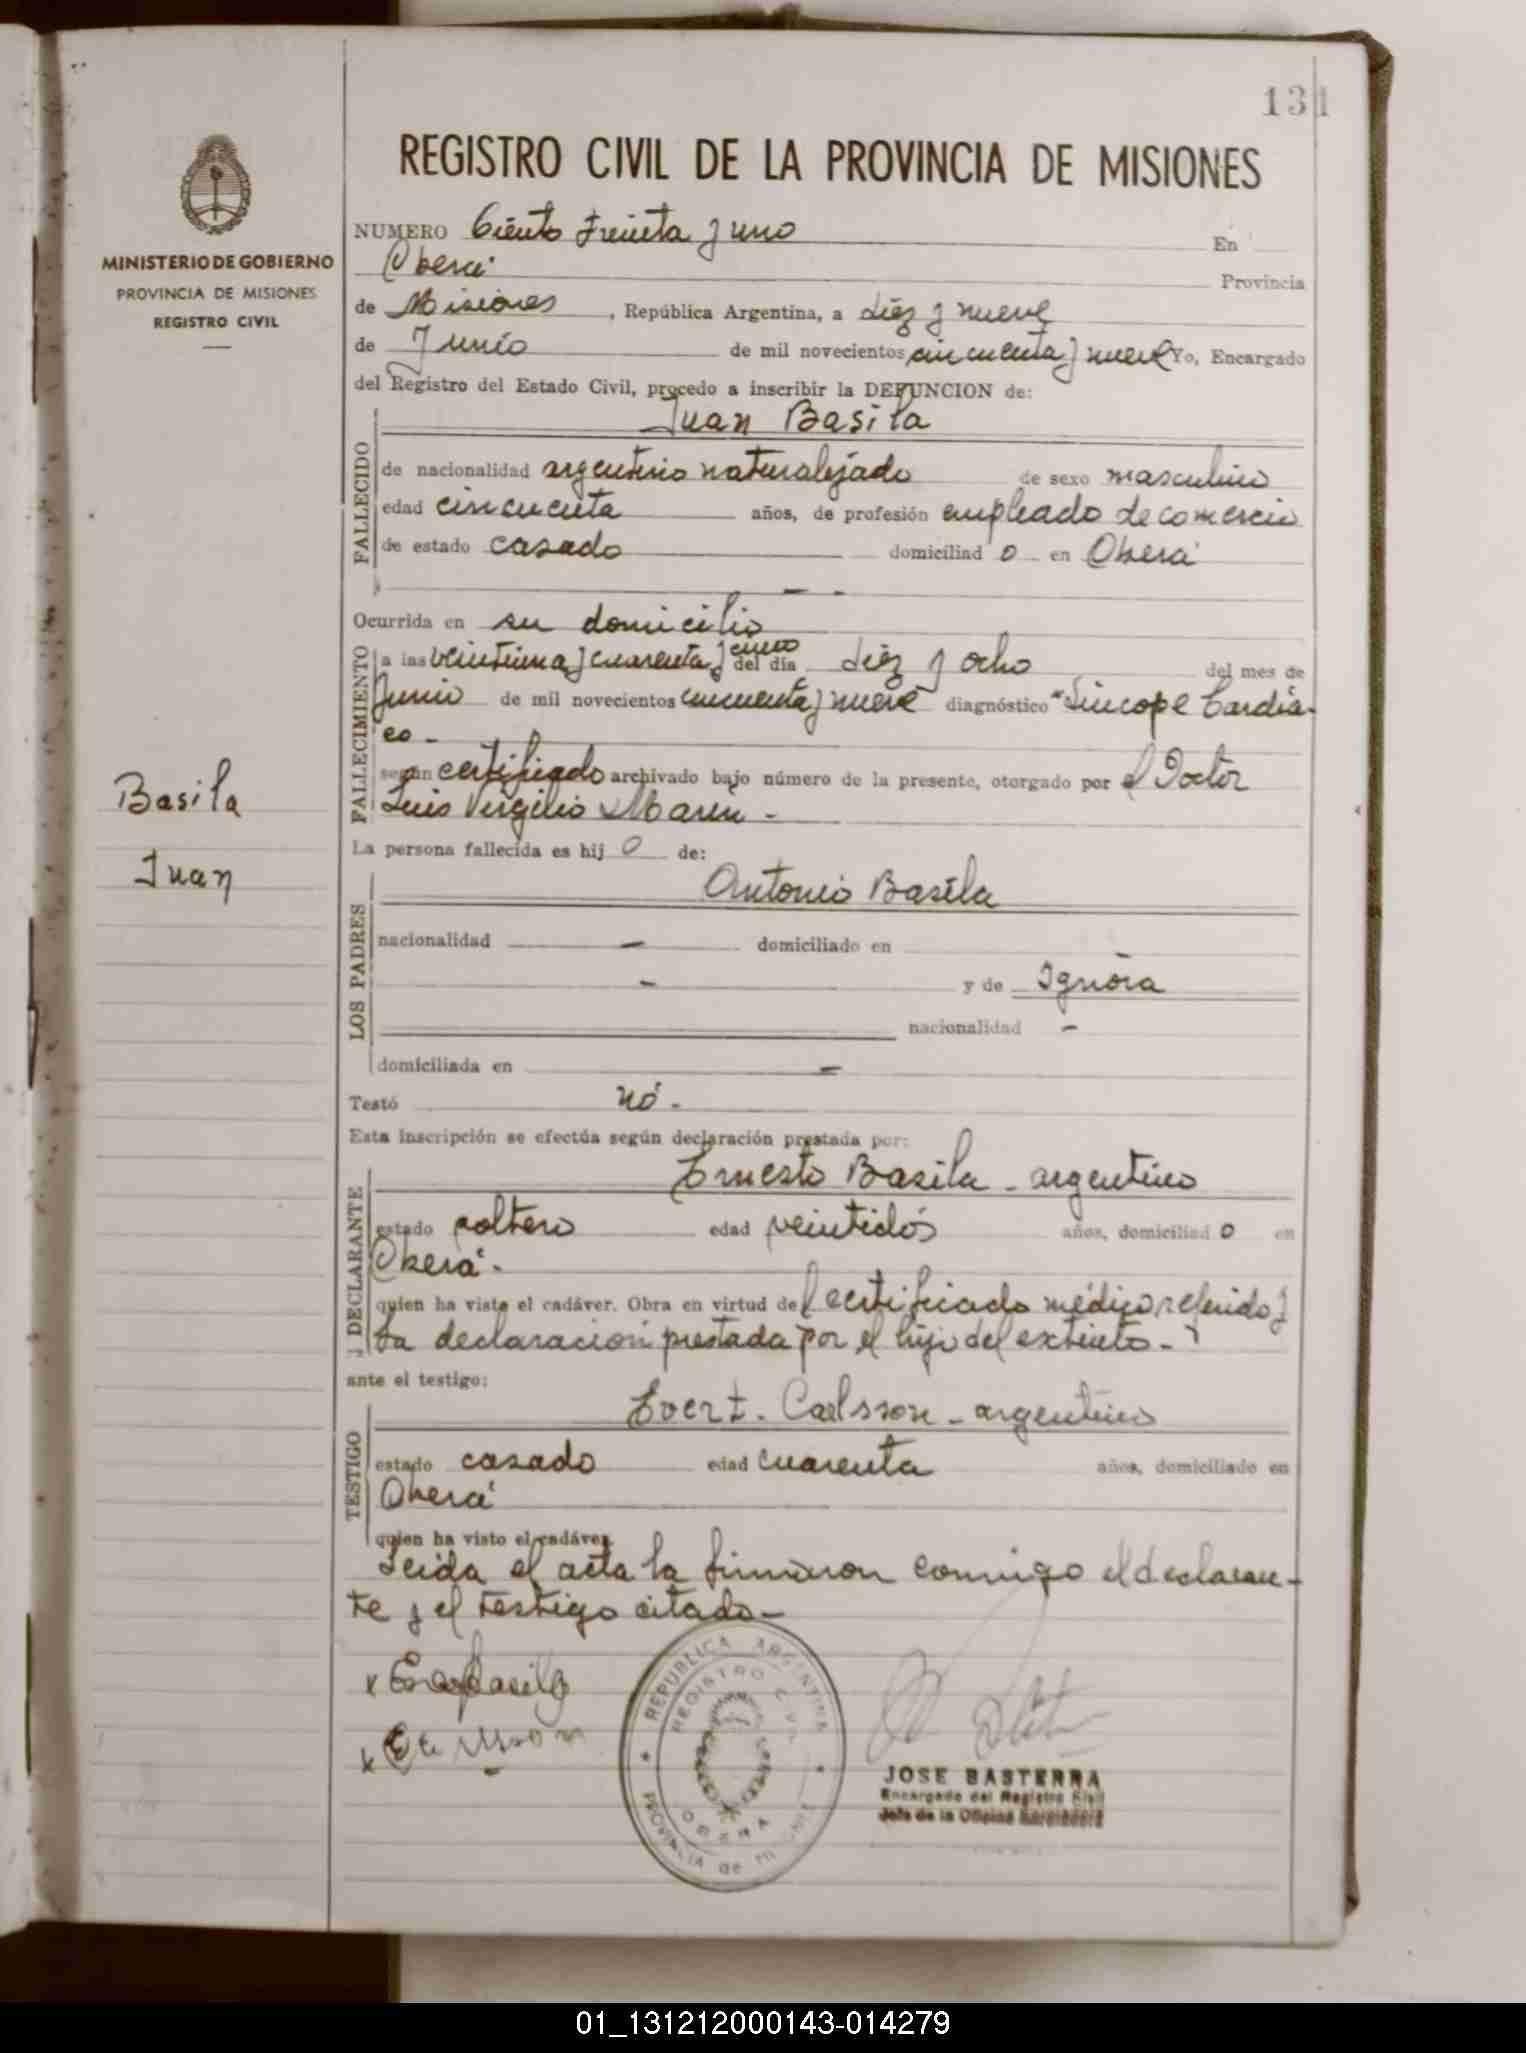 131
REGISTRO CIVIL DE LA PROVINCIA DE MISIONES
MINISTERIO DE GOBIERNO
PROVINCIA DE MISIONES
REGISTRO CIVIL
NUMERO Ciento treinta y uno En
Oberá Provincia
de Misiones, República Argentina, a diez y nueve
de Junio de mil novecientos cincuenta y nueve Yo, Encargado
del Registro del Estado Civil, procedo a inscribir la DEFUNCION de:
Juan Basila
FALLECIDO
de nacionalidad argentino naturalizado de sexo masculino
edad cincuenta años, de profesión empleado de comercio
de estado casado domiciliad o en Oberá
Ocurrida en su domicilio
FALLECIMIENTO
a las veintiuna y cuarenta y cinco del día diez y ocho del mes de
Junio de mil novecientos cincuenta y nueve diagnóstico "Síncope Cardía-
co -
según certificado archivado bajo número de la presente, otorgado por el Doctor
Luis Virgilio Marin -
Basila
Juan
La persona fallecida es hij o de:
LOS PADRES
Antonio Basila
nacionalidad - domiciliado en
- y de Ignora
nacionalidad -
domiciliada en -
Testó nó -
Esta inscripción se efectúa según declaración prestada por:
DECLARANTE
Ernesto Basila - argentino
estado soltero edad veintidós años, domiciliad o en
Oberá -
quien ha visto el cadáver. Obra en virtud del certificado médico referido y
la declaración prestada por el hijo del extinto -
ante el testigo:
TESTIGO
Evert Carlsson - argentino
estado casado edad cuarenta años, domiciliado en
Oberá
quien ha visto el cadáver.
Leida el acta la firmaron conmigo el declaran-
te y el testigo citado -
REPUBLICA ARGENTINA
REGISTRO CIVIL
OBERA
PROVINCIA de MISIONES
JOSE BASTERRA
Encargado del Registro Civil
Jefe de la Oficina
01_131212000143-014279